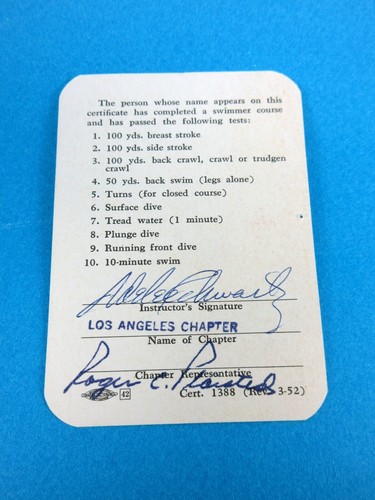 The person whose name appears on this
certificate has completed a swimmer course
and has passed the following tests:
1. 100 yds. breast stroke
2. 100 yds. side stroke
3. 100 yds. back crawl, crawl or trudgen
crawl
4. 50 yds. back swim (legs alone)
5. Turns (for closed course)
6. Surface dive
7. Tread water (1 minute)
8. Plunge dive
9. Running front dive
10. 10-minute swim
Adele Schwartz
Instructor's Signature
LOS ANGELES CHAPTER
Name of Chapter
Roger C.
Chapter Representative
42 Cert. 1388 (Rev. 3-52)